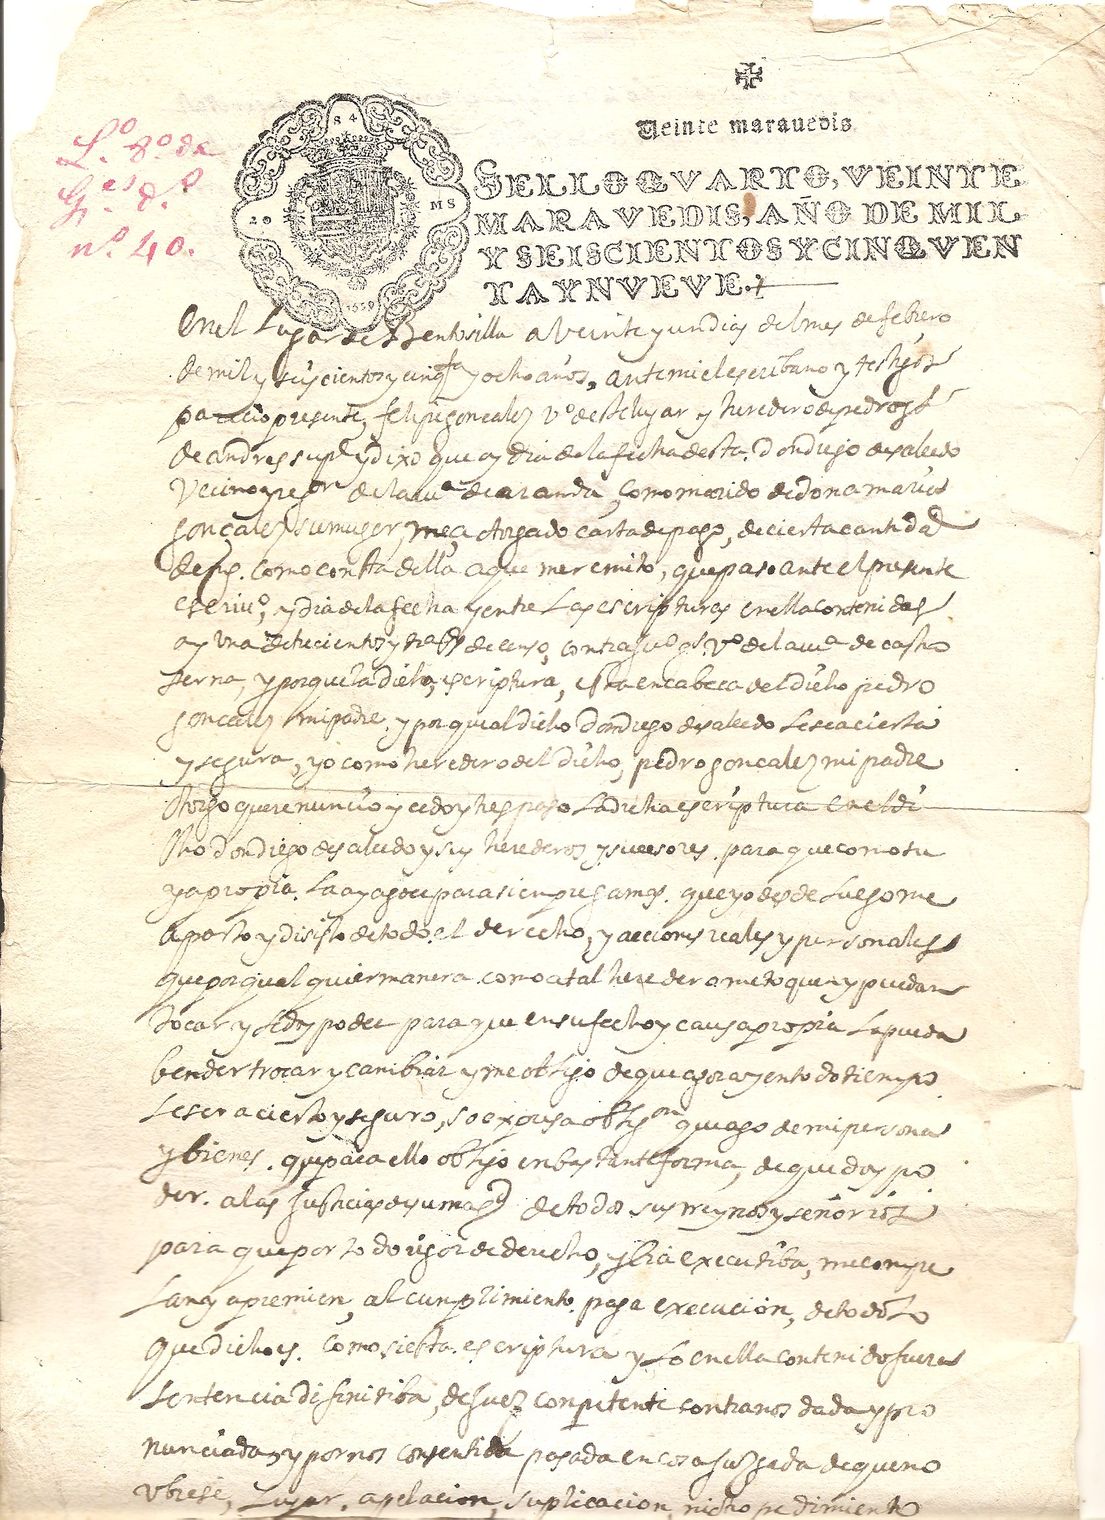 Lº 8º de
Ges d.º
nº 40.
84
20 MS
1659
Veinte marauedis
SELLO QVARTO, VEINTE
MARAVEDIS, AÑO DE MIL
Y SEISCIENTOS Y CINQVEN
TA Y NVEVE.
En el Lugar de Bentosilla a Veinte y un dias del mes de febrero
de mil y seiscientos y cinqta y ocho años, ante mi el escribano y testigos
parecio presente, felipe gonçalez Vº deste lugar y heredero de pedro
de andres su pe y dixo que oy dia de la fecha desta. Don diego de salcedo
Vecino y regor de la va de aranda, como marido de dona maria
gonçalez su muger, me a otorgado carta de pago, de cierta cantidad
como consta della a que me remito, que paso ante el presente
escriuº, y dia de la fecha y entre Las escripturas en ella contenidas
ay una de de censo, contra Vº de la va de castro
serna, y porque la dicha, escriptura, esta en cabeca del dicho pedro
gonçalez mi padre y porque al dicho Don diego de salcedo Le sea cierta
y segura, yo como heredero del dicho, pedro gonçalez mi padre
otorgo que renuncio y cedo y trespaso La dicha escriptura en el di
cho don diego de salcedo y sus herederos y sucesores. para que como su
ya propia. La aya goce para sienpre jamas. que yo desde Luego me
aparto y disisto de todo el derecho, y acciones reales y personales
que por qualquier manera como a tal heredero me toquen y puedan
tocar y Le doy poder para que en su fecho y causa propia La pueda
bender trocar y canbiar y me obligo de que agora y en todo tienpo
Le sera cierto y seguro, so expresa obligon que ago de mi persona
y bienes. que para ello obligo en bastante forma, de que doy po
der. a las justicias de su magd de todos sus reynos y señorios
para que por todo rigor de derecho, y bia executiba, me conpe
Lan y apremien, al cunplimiento. paga execucion, de todo Lo
que dicho es. como si esta escriptura y Lo en ella contenido fuera
sentencia difinitiba, de Juez conpetente contra nos dada y pro
nunciada, y por nos consentida pasada en cosa juzgada de que no
vbiese, Lugar. apelacion, suplicacion, ni otro pedimiento